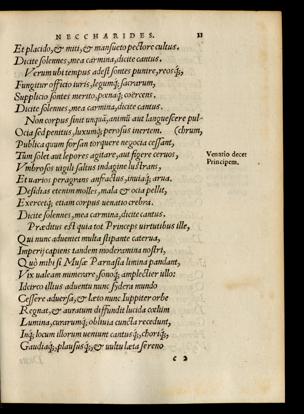 NECCHARIDES. 11
Et placido, & miti, & mansueto pectore cultus.
Dicite solennes, mea carmina, dicite cantus.
Verum ubi tempus adest sontes punire, reosq́;,
Fungitur officio iuris, legumq́; sacrarum,
Supplicio sontes merito, pœnaq́; coërcens.
Dicite solennes, mea carmina, dicite cantus.
Non corpus sinit unquã, animũ aut languescere pul-
Ocia sed penitus, luxumq́; perosus inertem. (chrum,
Publica quum forsan torquere negocia cessant,
Tum solet aut lepores agitare, aut figere ceruos,
Venatio decet
Principem.
Vmbrosos uigili saltus indagine lustrans,
Et uarios peragrans anfractus, inuiaq́; arua.
Desidias etenim molles, mala & ocia pellit,
Exercetq́; etiam corpus uenatio crebra.
Dicite solennes, mea carmina, dicite cantus.
Præditus est quia tot Princeps uirtutibus ille,
Qui nunc adueniet multa stipante caterua,
Imperij capiens tandem moderamina nostri,
Quò mihi si Musæ Parnasia limina pandant,
Vix ualeam numerare, sonoq́; amplectier ullo:
Idcirco illius aduentu nunc sydera mundo
Cessere aduersa, & læto nunc Iuppiter orbe
Regnat, & auratum diffundit lucida cœlum
Lumina, curarumq́; obliuia cuncta recedunt,
Inq́; locum illorum ueniunt cantusq́;, choriq́;,
Gaudiaq́;, plaususq́;, & uultu læta sereno
C 3